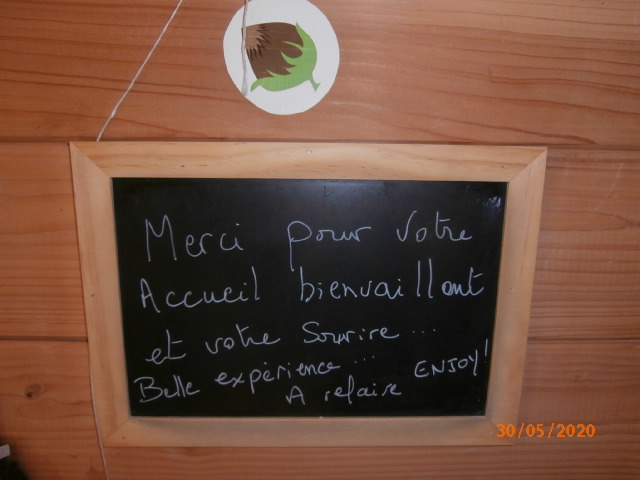 Merci pour votre
Accueil bienvaillant
et votre Sourire ...
Belle expérience ... ENJOY!
A refaire
30/05/2020